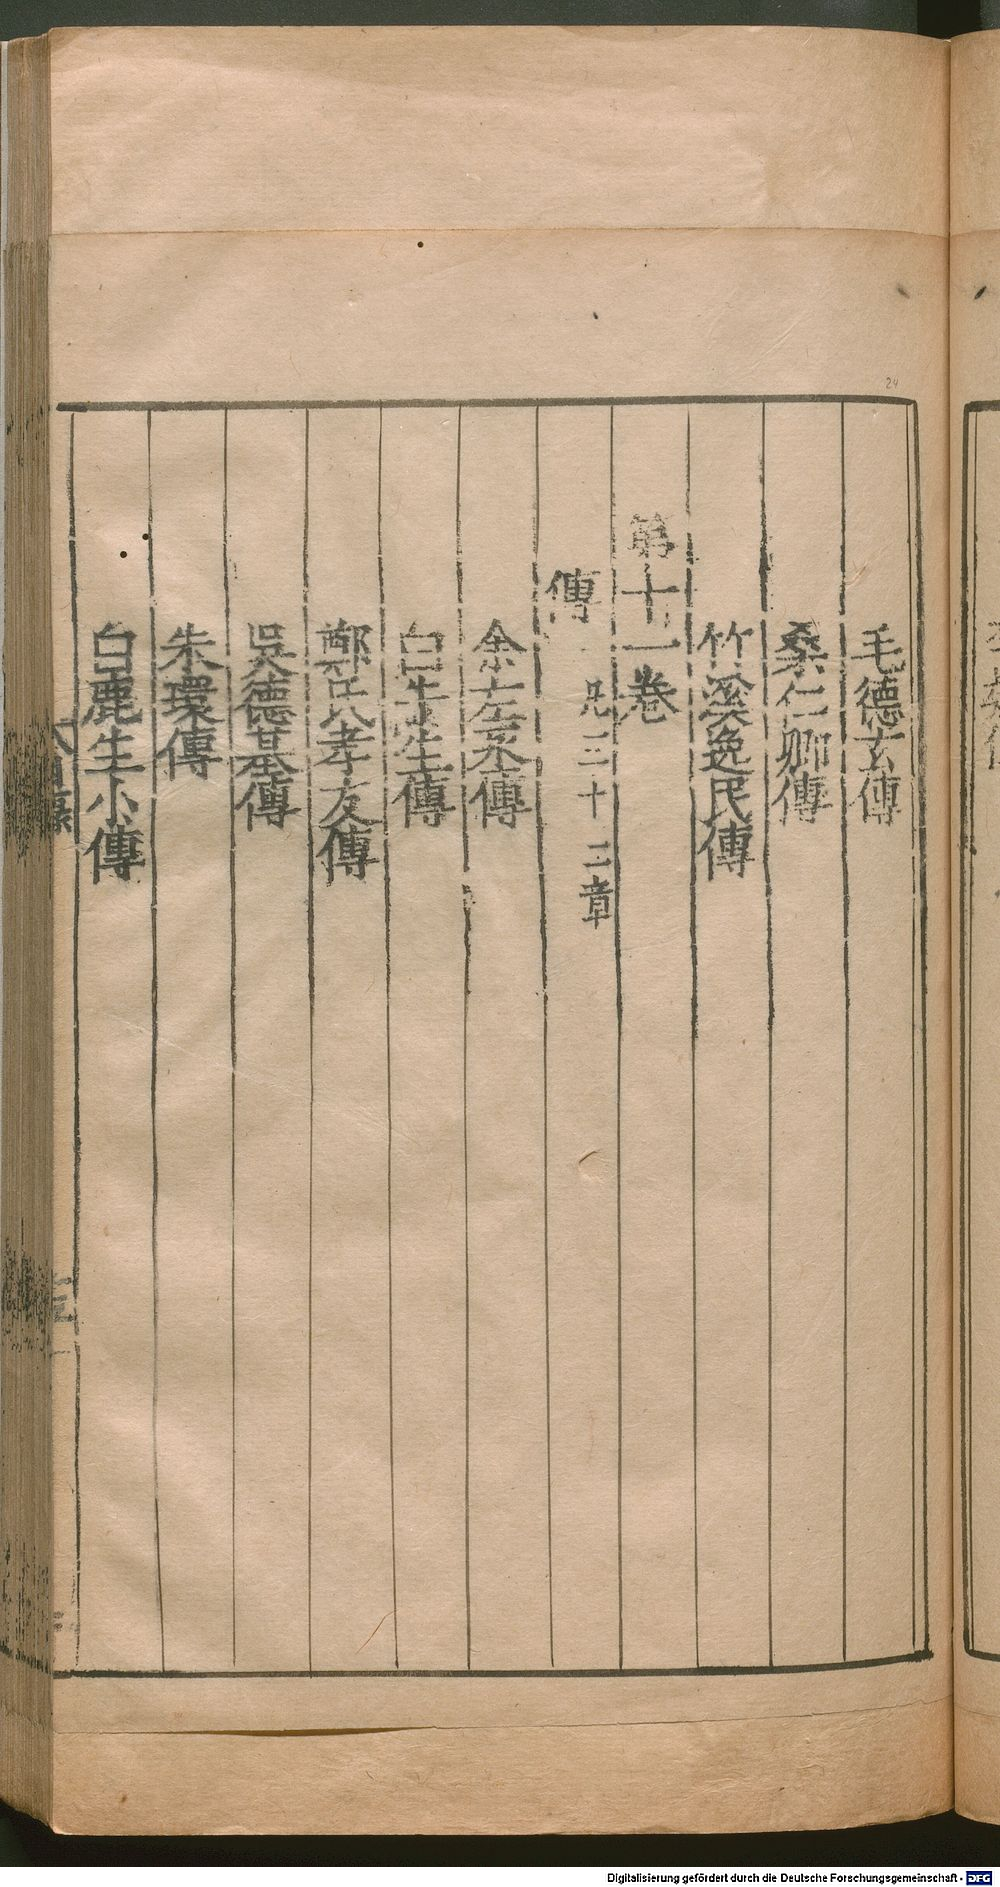 24
毛德玄傳
桑仁卿傳
竹溪逸民傳
第十一卷
傳 凡三十二章
余左丞傳
白牛生傳
鄭氏孝友傳
吳德基傳
朱環傳
白鹿生小傳
Digitalisierung gefördert durch die Deutsche Forschungsgemeinschaft - DFG